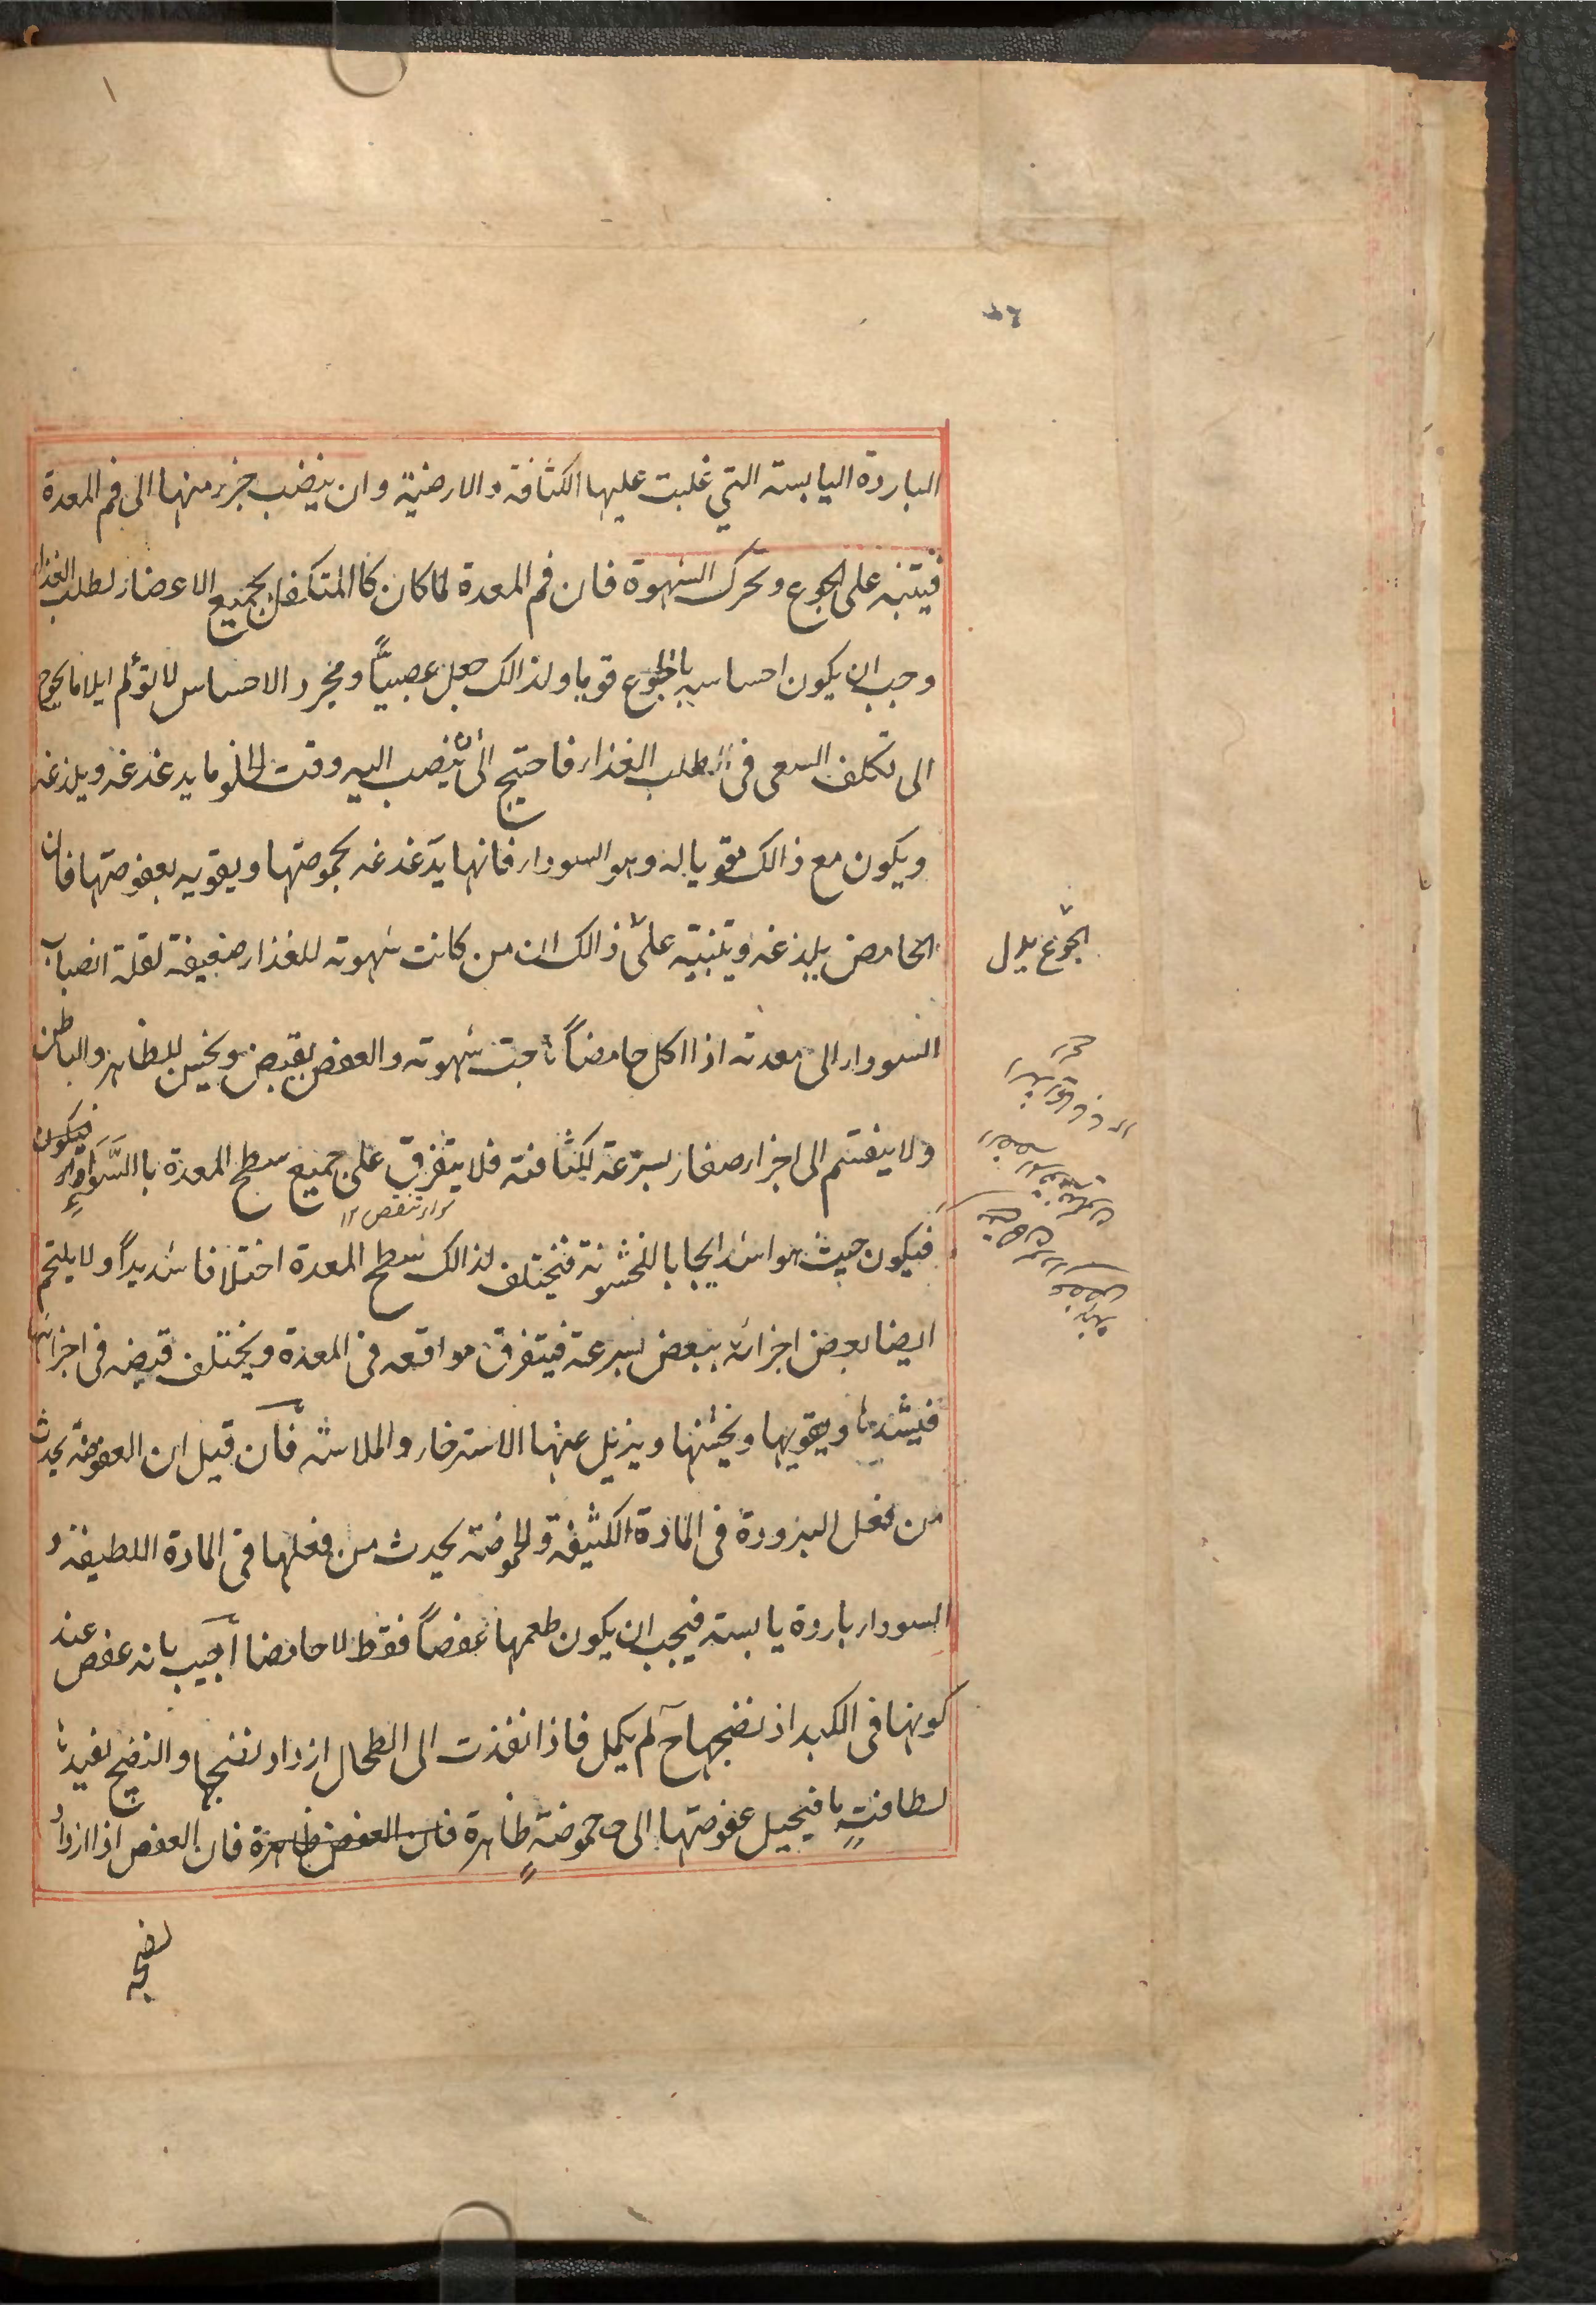 الباردة اليابسته التي غلبت عليها الكثافة والارضية وان ينضب جزء منها الى فم المعدة
فيتنبه على الجوع ويحرك الشهوة فان فم المعدة لما كان كالمتكفل بجميع الاعضاء لطلب الغذاء
وجب ان يكون احساسه بالجوع قويا ولذالك جعل عصبيًّا ومجرد الاحساس لا يؤلم ايلاما يحوج
الى تكلف السعى فى الطلب الغذاء فاحتيج الى ان ينصب اليه وقت الخلو ما يدغدغه ويلذعه
ويكون مع ذالك مقويا له وهو السوداء فانها يدغدغه بحموضتها ويقويه بعفوصتها فان
الحامض يلذغه ويتنبيه على ذالك ان من كانت شهوته للغذاء ضعيفة لقلة انصباب
السوداء الى معدته اذا اكل حامضاً هاجت شهوته والعفص يقبض ويخشن للظاهر والباطن
ولا ينقسم الى اجزاء صغار بسرعة لكثافته فلا يتفرق على جميع سطح المعدة باالسَّواءِ فيكون
فيكون حيث هو اشد ايجابا للخشونة فيختلف لذالك سطح المعدة اختلافا شديداً ولا يلتحم
ايضا بعض اجزائه ببعض بسرعة فيتفرق مواقعه فى المعدة ويختلف قبضه فى اجزائها
فيشدها ويقويها ويخشنها ويزيل عنها الاسترخاء والملاسته فان قيل ان العفوصة يحدث
من فعل البرودة فى المادة الكثيفة والحموضة يحدث من فعلها فى المادة اللطيفة و
السوداء باردة يابسته فيجب ان يكون طعمها عفصاً فقط لا حامضا اجيب بانه عفص عند
كونها فى الكبد اذ نضجها ح لم يكمل فاذا نفذت الى الطحال ازداد نضجها والنضج يفيدها
لطافتٍ ما فيحيل عفوصتها الى حموضةٍ ظاهرة فان العفص ظاهرة فان العفص اذا ازداد
نضجه